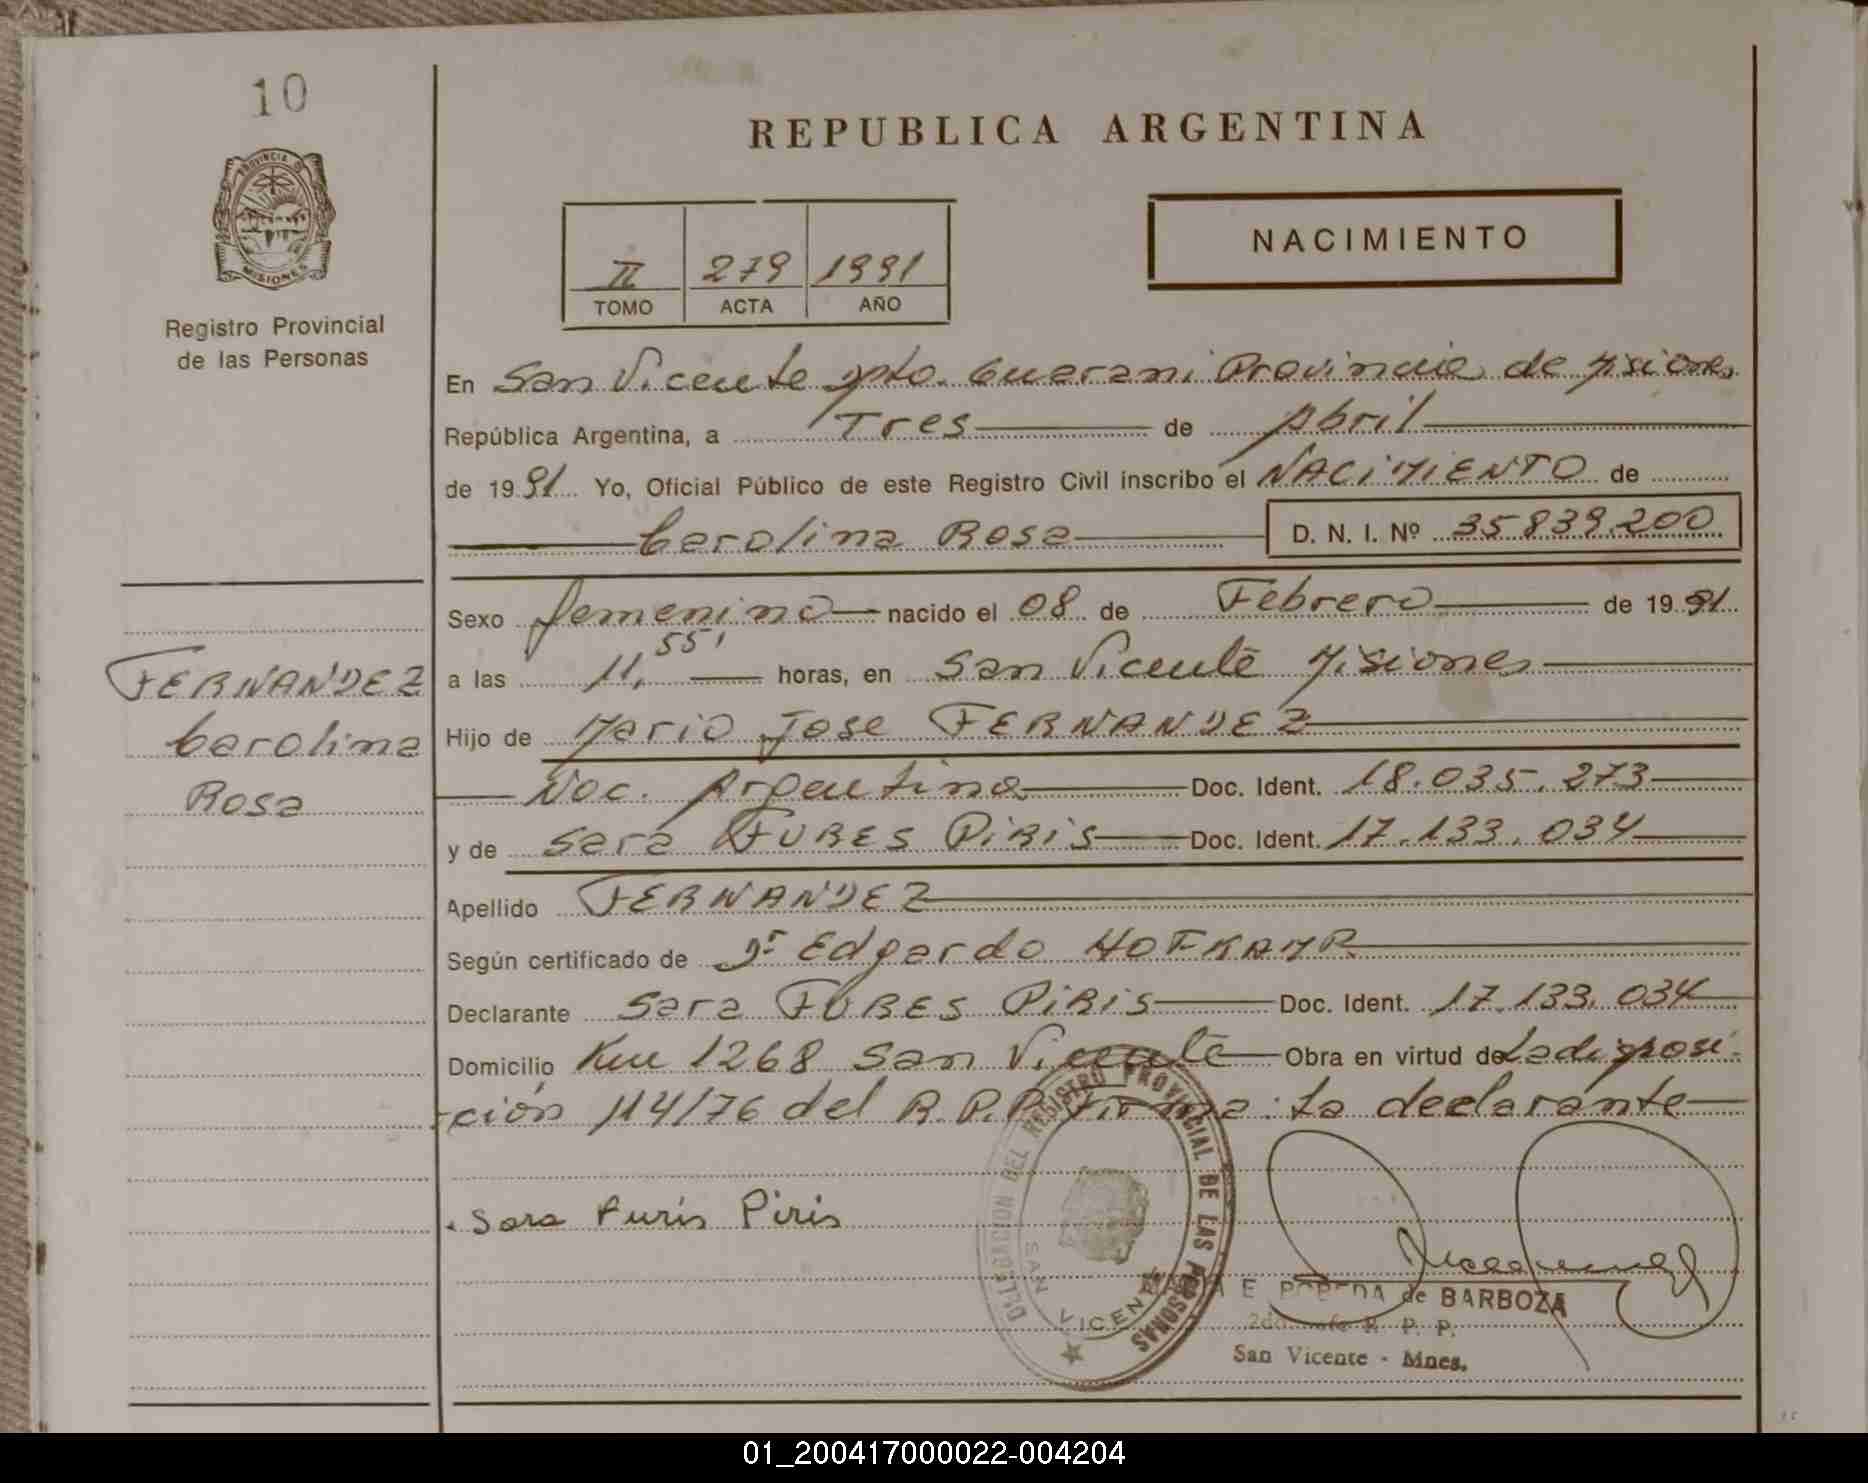 10
REPUBLICA ARGENTINA
PROVINCIA DE
MISIONES
Registro Provincial
de las Personas
II 279 1991
TOMO ACTA AÑO
NACIMIENTO
En San Vicente Dpto. Guarani Provincia de Misiones
República Argentina, a Tres de Abril
de 1991 Yo, Oficial Público de este Registro Civil inscribo el NACIMIENTO de
Carolina Rosa D. N. I. Nº 35839.200
Sexo femenino nacido el 08 de Febrero de 1991
a las 11,55' horas, en San Vicente Misiones
Hijo de Mario Jose FERNANDEZ
Nac. Argentina Doc. Ident. 18.035.273
y de Sara FURES PiRiS Doc. Ident. 17.133.034
Apellido FERNANDEZ
Según certificado de Dr Edgardo HOFKAMP
Declarante Sara FURES PiRiS Doc. Ident. 17.133.034
Domicilio Km 1268 San Vicente Obra en virtud de La disposi-
ción 114/76 del R.P.P. Firma: La declarante
FERNANDEZ
Carolina
Rosa
Sara Furis Piris
DELEGACION DEL REGISTRO PROVINCIAL DE LAS PERSONAS
SAN VICENTE
E. de BARBOZA
R. P. P.
San Vicente - Mnes.
01_200417000022-004204